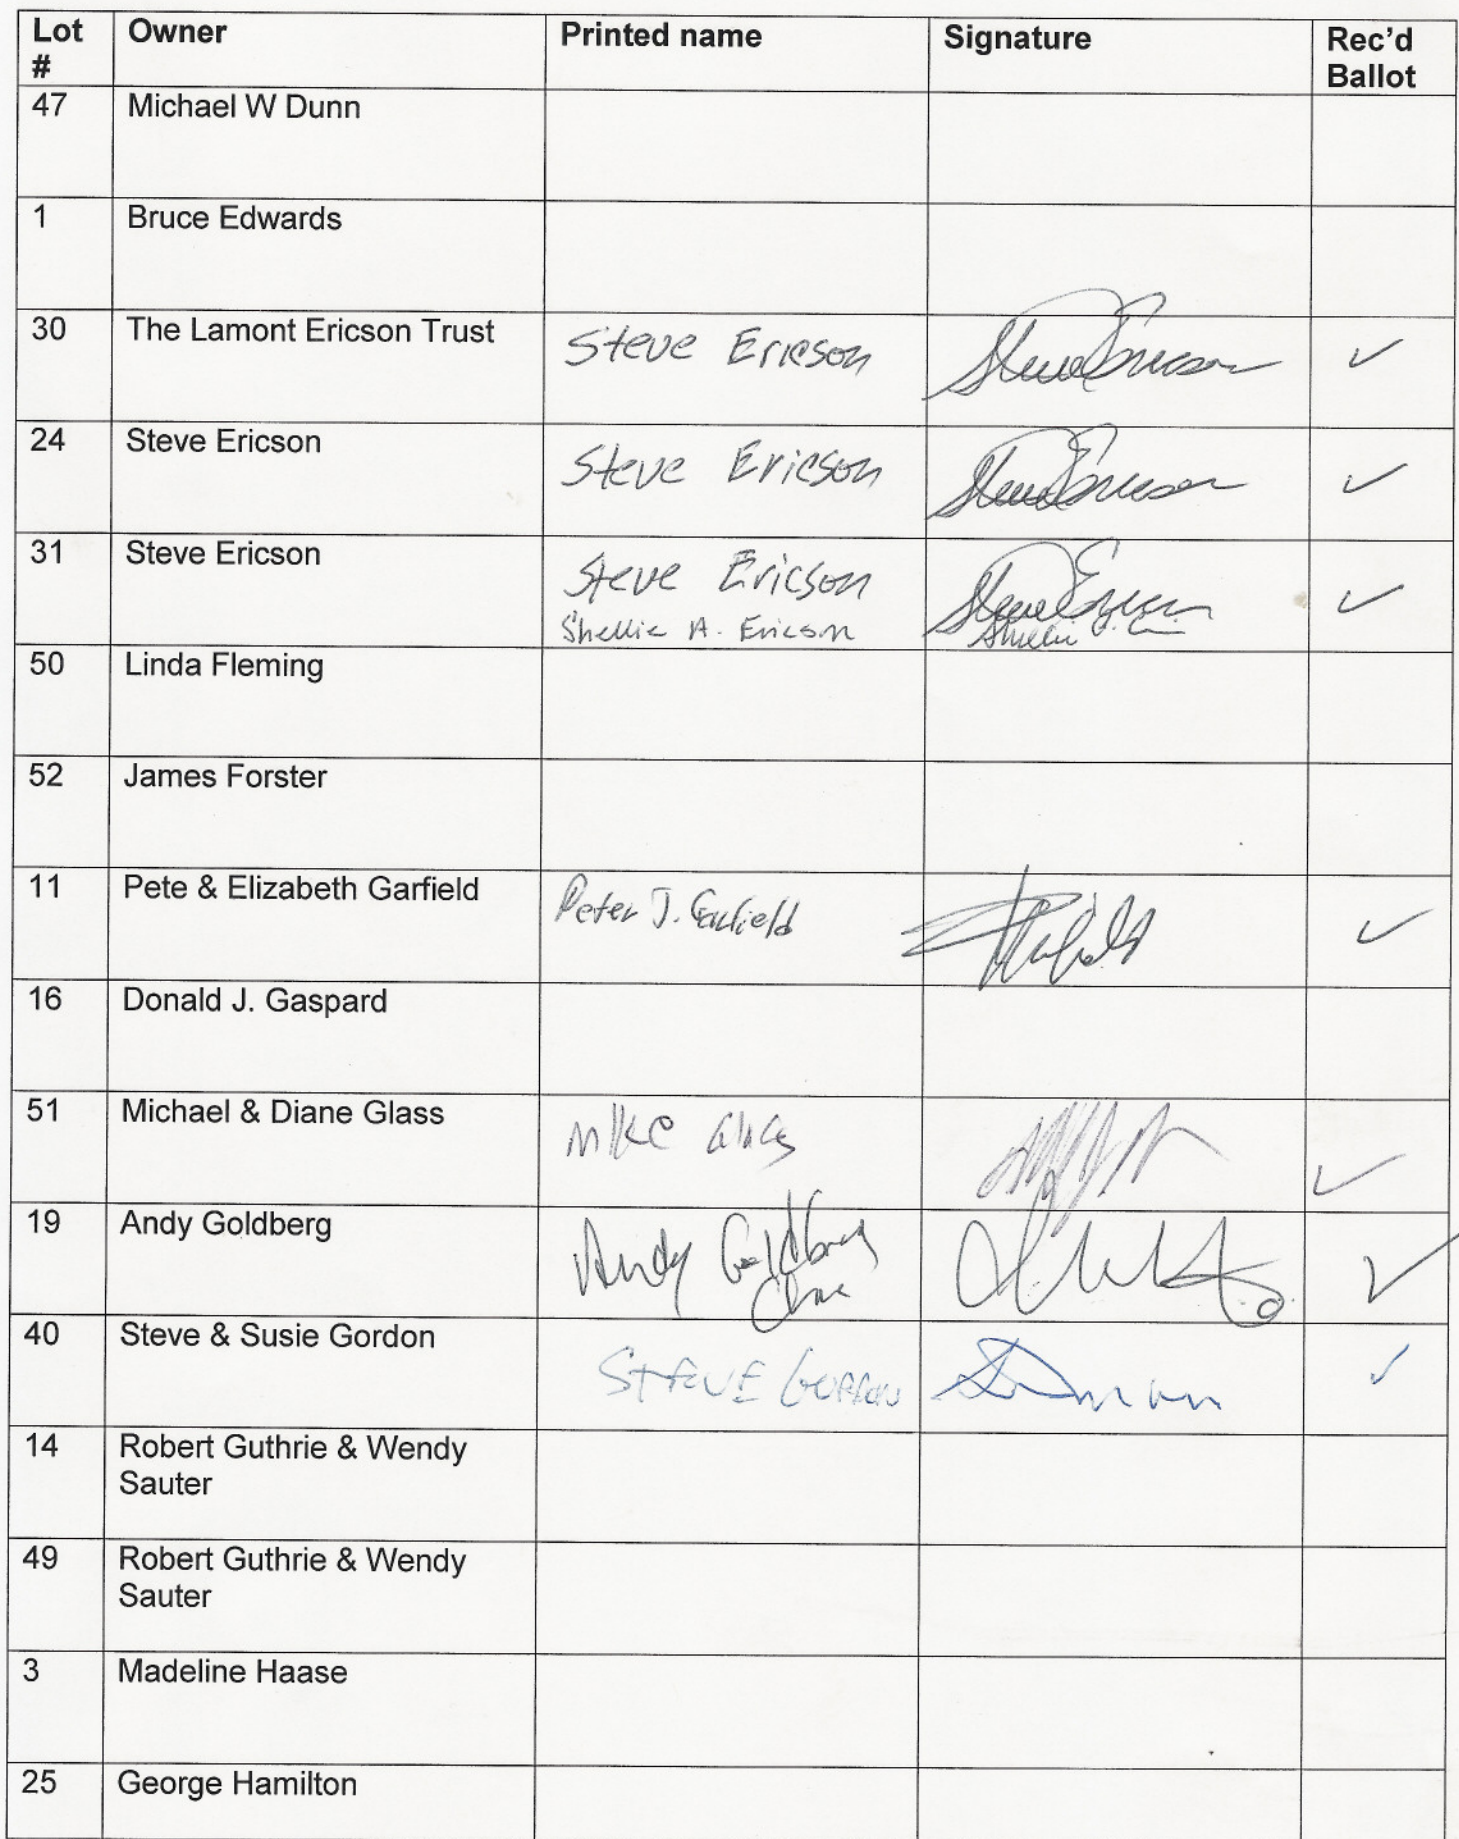 Lot # Owner Printed name Signature Rec'd Ballot
47 Michael W Dunn
1 Bruce Edwards
30 The Lamont Ericson Trust Steve Ericson Steve Ericson ✓
24 Steve Ericson Steve Ericson Steve Ericson ✓
31 Steve Ericson Steve Ericson Steve Ericson ✓
Shellie A. Ericson
50 Linda Fleming
52 James Forster
11 Pete & Elizabeth Garfield Peter J. Garfield ✓
16 Donald J. Gaspard
51 Michael & Diane Glass Mike Glass ✓
19 Andy Goldberg Andy Goldberg ✓
40 Steve & Susie Gordon STEVE GORDON ✓
14 Robert Guthrie & Wendy
Sauter
49 Robert Guthrie & Wendy
Sauter
3 Madeline Haase
25 George Hamilton